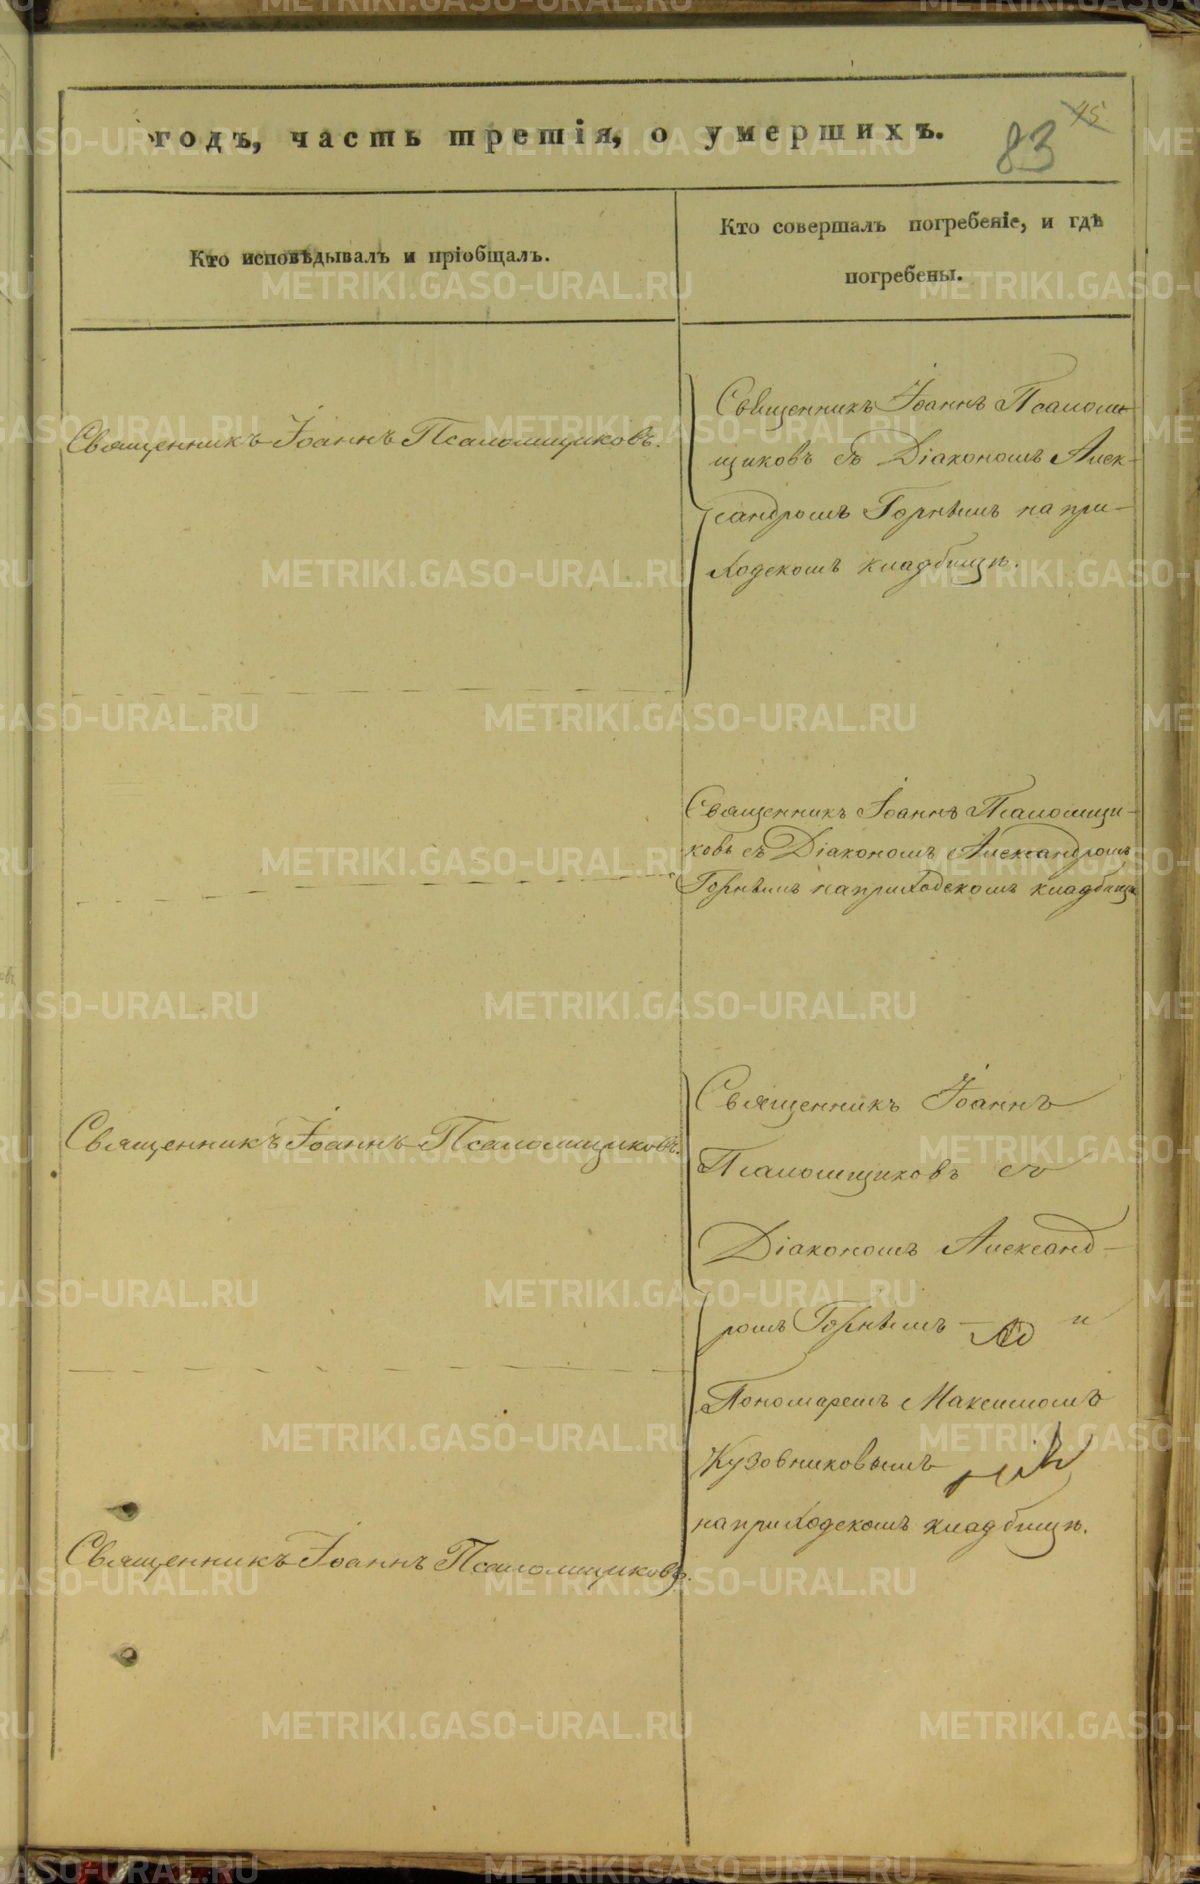 годъ, часть третія, о умершихъ.
45
83
Кто исповѣдывалъ и пріобщалъ.
Кто совершалъ погребеніе, и гдѣ
погребены.
Священникъ Іоаннъ Псаломщиковъ.
Священникъ Іоаннъ Псалом-
щиковъ съ Діакономъ Алек-
сандромъ Горнымъ на при-
ходскомъ кладбищѣ.
Священникъ Іоаннъ Псаломщи-
ковъ съ Діакономъ Александромъ
Горнымъ на приходскомъ кладбищѣ
Священникъ Іоаннъ Псаломщиковъ.
Священникъ Іоаннъ
Псаломщиковъ съ
Діакономъ Александ-
ромъ Горнымъ и
Пономаремъ Максимомъ
Кузовниковымъ
на приходскомъ кладбищѣ.
Священникъ Іоаннъ Псаломщиковъ.
METRIKI.GASO-URAL.RU